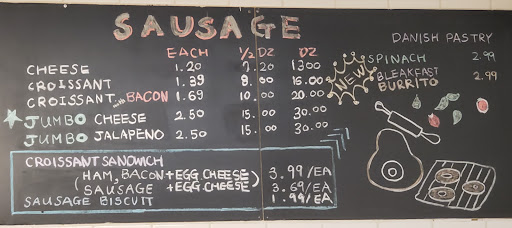 SAUSAGE
EACH 1/2 DZ DZ
CHEESE 1.20 7.20 13.00
CROISSANT 1.39 8.00 16.00
CROISSANT with BACON 1.69 10.00 20.00
JUMBO CHEESE 2.50 15.00 30.00
JUMBO JALAPENO 2.50 15.00 30.00
CROISSANT SANDWICH
(HAM, BACON + EGG, CHEESE) 3.99/EA
(SAUSAGE + EGG, CHEESE) 3.69/EA
SAUSAGE BISCUIT 1.99/EA
DANISH PASTRY
NEW
SPINACH 2.99
BLEAKFAST 2.99
BURRITO